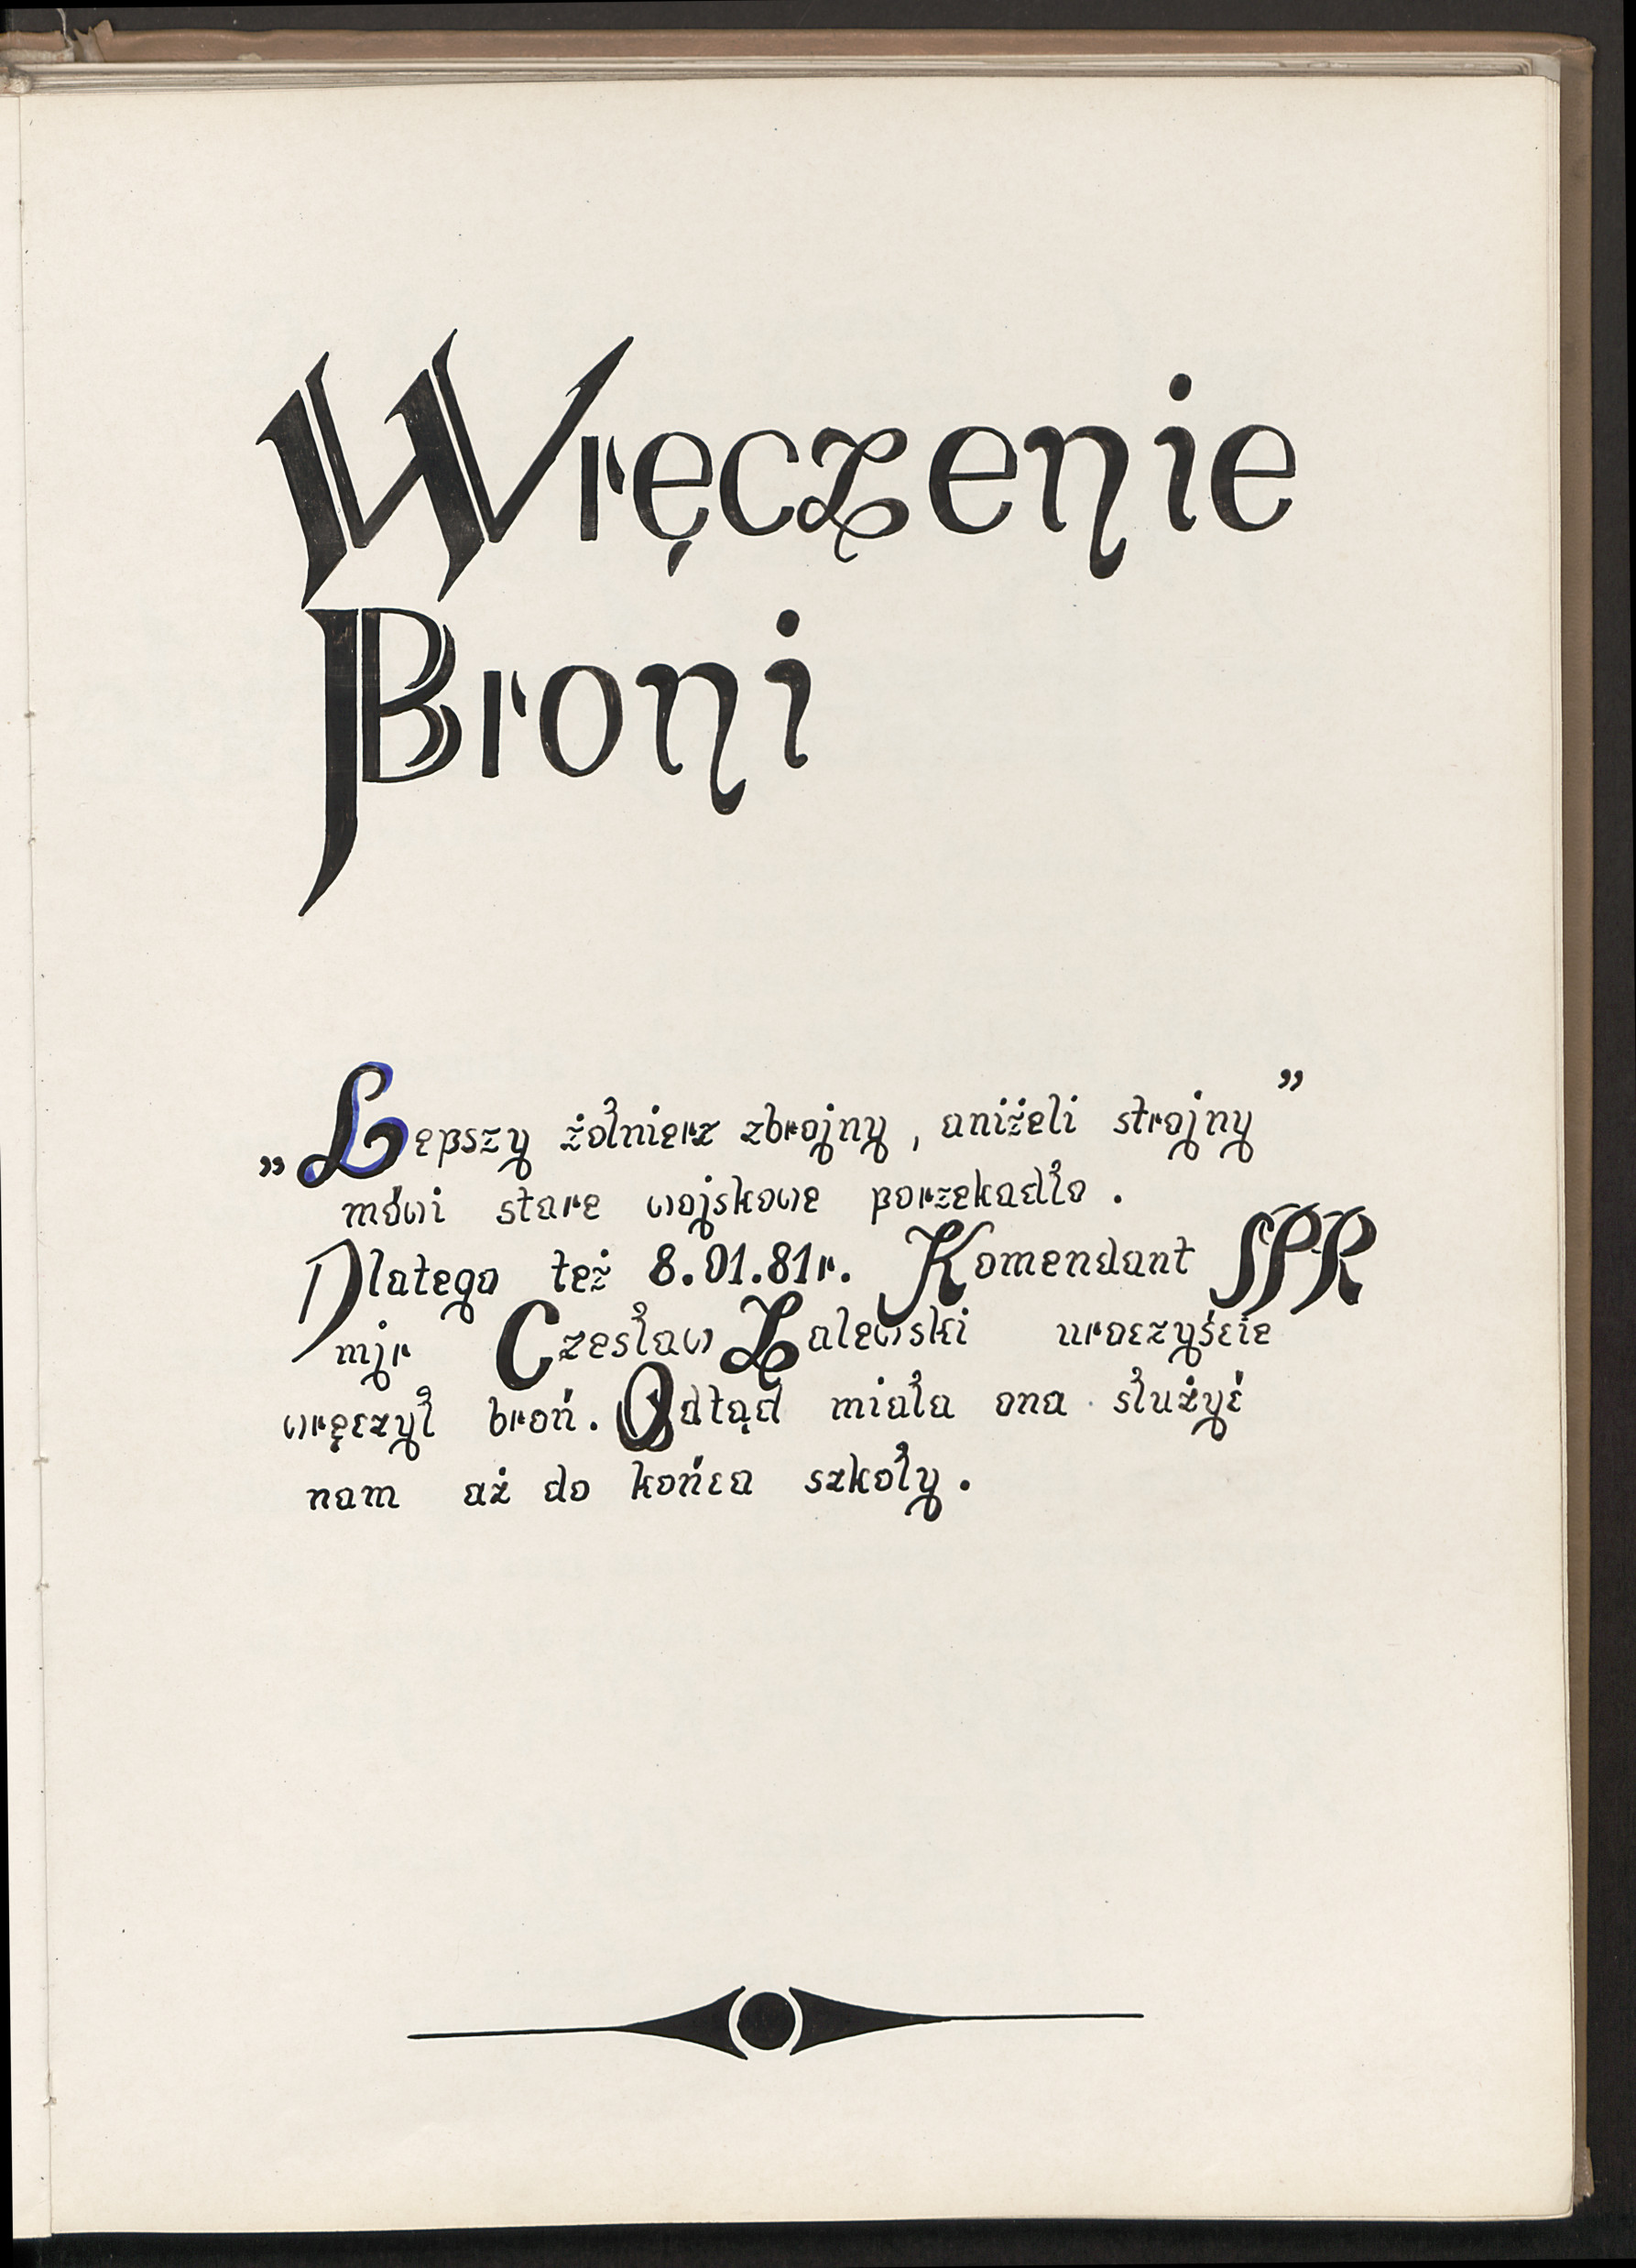 Wręczenie
Broni
„Lepszy żołnierz zbrojny, aniżeli strojny”
mówi stare wojskowe porzekadło.
Dlatego też 8.01.81r. Komendant SPR
mjr Czesław Zalewski uroczyście
wręczył broń. Odtąd miała ona służyć
nam aż do końca szkoły.